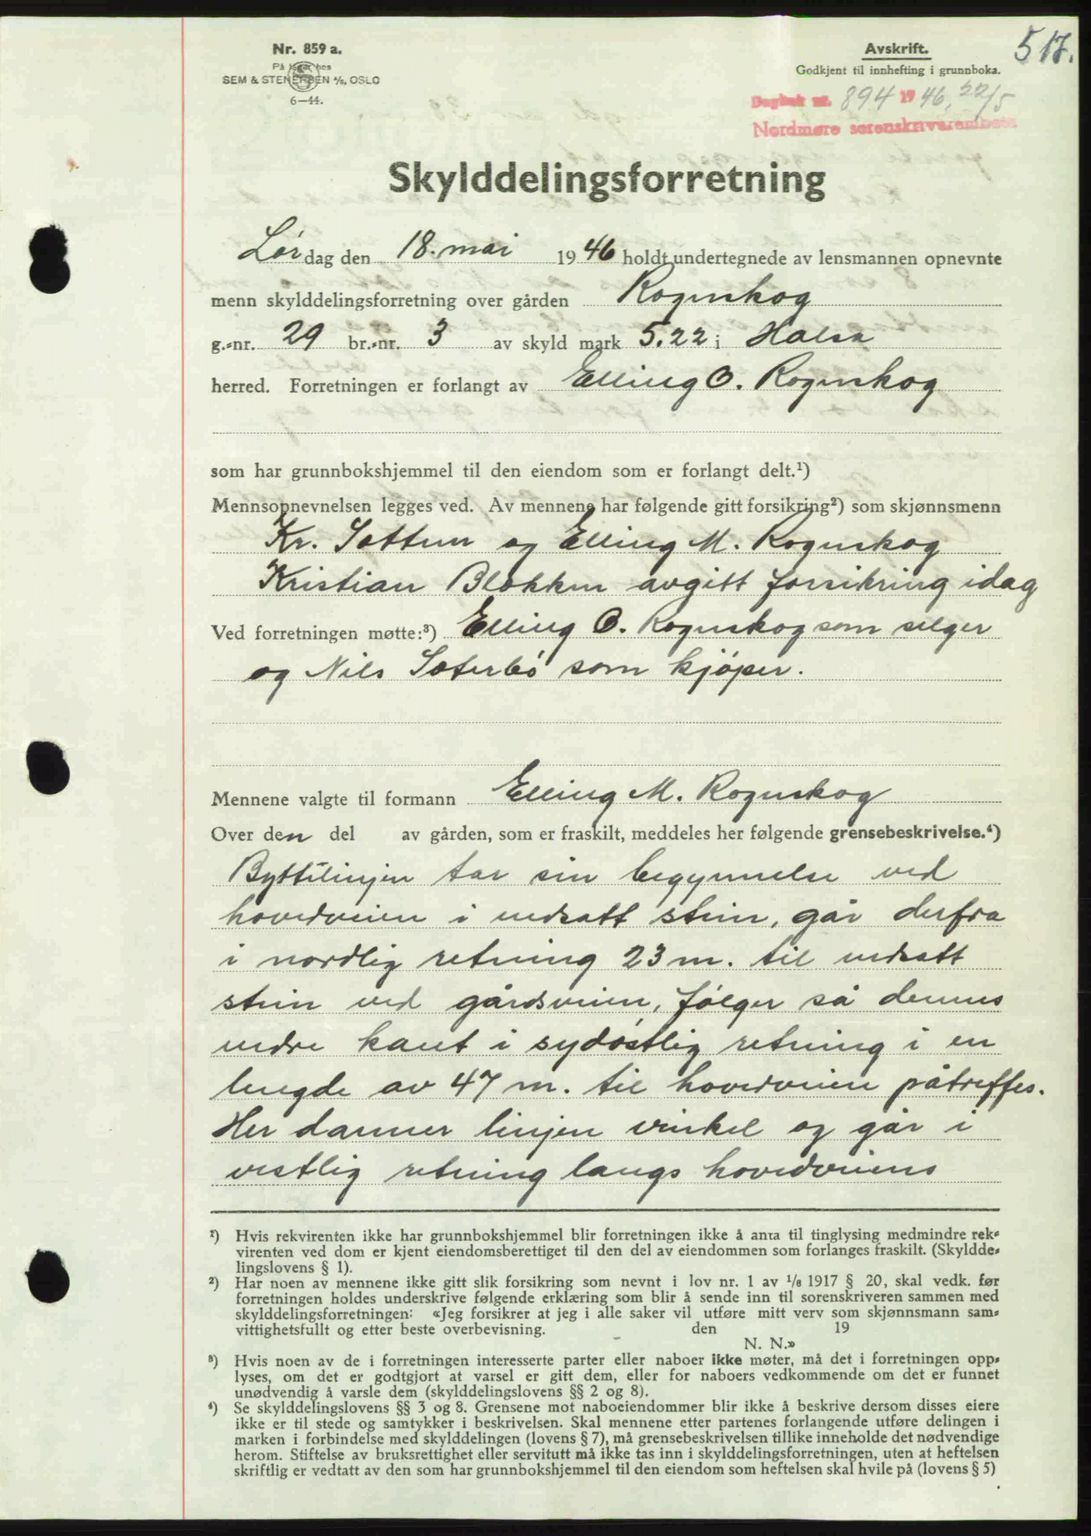 Nr. 859 a.
På lager hos
SEM & STENERSEN A/S, OSLO
6—44.
Avskrift.
Godkjent til innhefting i grunnboka.
517.
Dagbok nr. 894 1946, 22/5
Nordmøre sorenskriverembete
Skylddelingsforretning
Lørdag den 18. mai 1946 holdt undertegnede av lensmannen opnevnte
menn skylddelingsforretning over gården Rognskog
g.-nr. 29 br.-nr. 3 av skyld mark 5.22 i Halsa
herred. Forretningen er forlangt av Elling O. Rognskog
som har grunnbokshjemmel til den eiendom som er forlangt delt.¹)
Mennsopnevnelsen legges ved. Av mennene har følgende gitt forsikring²) som skjønnsmenn
Kr. Sottun og Elling M. Rognskog
Kristian Blekken avgitt forsikring idag
Ved forretningen møtte:³) Elling O. Rognskog som selger
og Nils Sæterbö som kjöper.
Mennene valgte til formann Elling M. Rognskog
Over den del av gården, som er fraskilt, meddeles her følgende grensebeskrivelse.⁴)
Byttelinjen tar sin begynnelse ved
hovedveien i nedsatt stein, går derfra
i nordlig retning 23 m. til nedsatt
stein ved gårdsveien, fölger så dennes
nedre kant i sydöstlig retning i en
lengde av 47 m. til hovedveien påtreffes.
Her danner linjen vinkel og går i
vestlig retning langs hovedveiens
¹) Hvis rekvirenten ikke har grunnbokshjemmel blir forretningen ikke å anta til tinglysing medmindre rek-
virenten ved dom er kjent eiendomsberettiget til den del av eiendommen som forlanges fraskilt. (Skyldde-
lingslovens § 1).
²) Har noen av mennene ikke gitt slik forsikring som nevnt i lov nr. 1 av 1/6 1917 § 20, skal vedk. før
forretningen holdes underskrive følgende erklæring som blir å sende inn til sorenskriveren sammen med
skylddelingsforretningen: «Jeg forsikrer at jeg i alle saker vil utføre mitt verv som skjønnsmann sam-
vittighetsfullt og etter beste overbevisning. den 19
N. N.»
³) Hvis noen av de i forretningen interesserte parter eller naboer ikke møter, må det i forretningen opp-
lyses, om det er godtgjort at varsel er gitt dem, eller for naboers vedkommende om det er funnet
unødvendig å varsle dem (skylddelingslovens §§ 2 og 8).
⁴) Se skylddelingslovens §§ 3 og 8. Grensene mot naboeiendommer blir ikke å beskrive dersom disses eiere
ikke er til stede og samtykker i beskrivelsen. Skal mennene etter partenes forlangende utføre delingen i
marken i forbindelse med skylddelingen (lovens § 7), må grensebeskrivelsen tillike inneholde det nødvendige
herom. Stiftelse av bruksrettighet eller servitutt må ikke tas inn i skylddelingsforretningen, uten at heftelsen
skriftlig er vedtatt av den som har grunnbokshjemmel til den eiendom som heftelsen skal hvile på (lovens § 5)